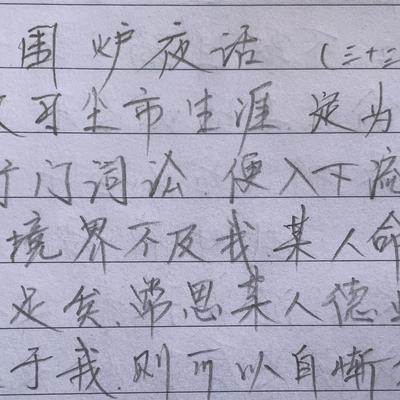 围炉夜话 (三十三
习尘市生涯.定为
门词讼.便入下流
境界不及我.某人命
足矣.常思某人德
于我.则可以自惭